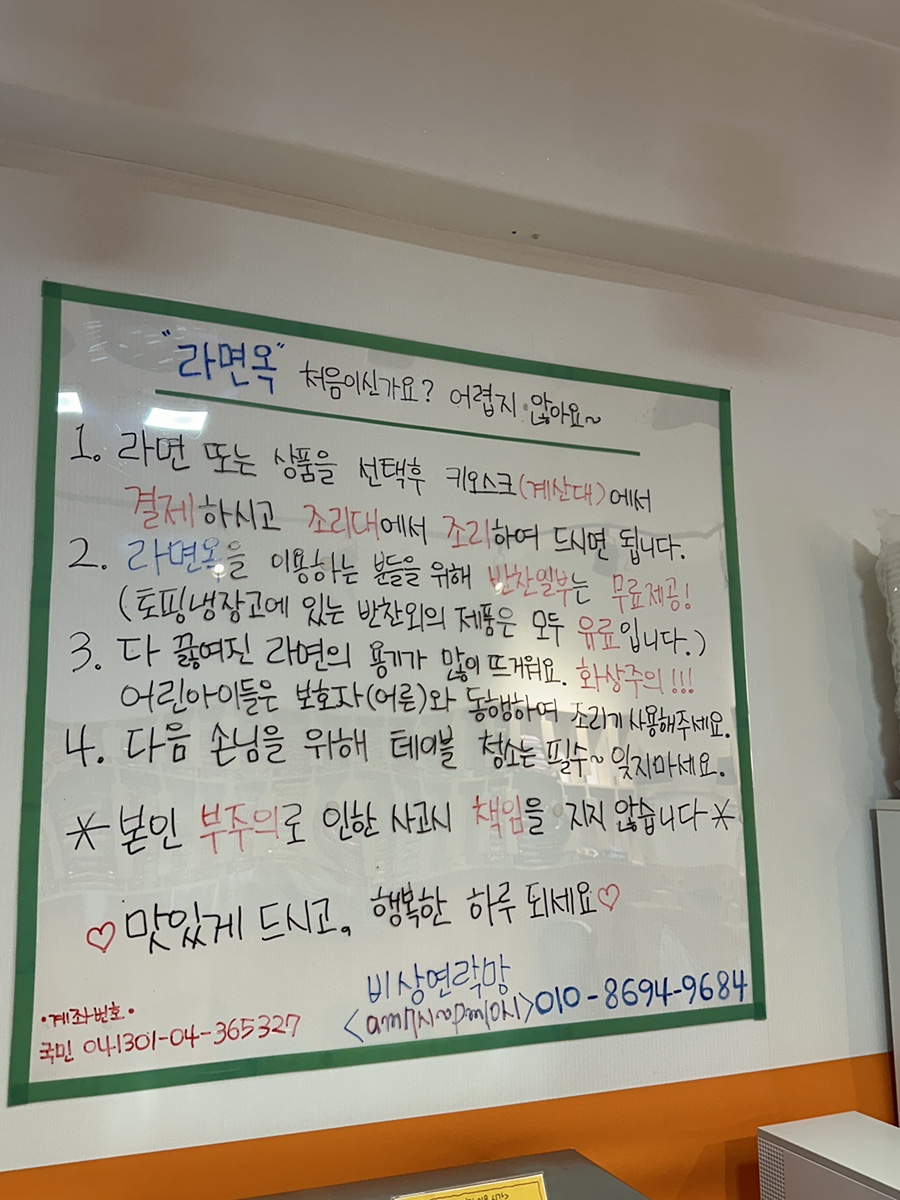 "라면옥" 처음이신가요? 어렵지 않아요~
1. 라면 또는 상품을 선택후 키오스크(계산대)에서
결제하시고 조리대에서 조리하여 드시면 됩니다.
2. 라면옥을 이용하는 분들을 위해 반찬일부는 무료제공!
(토핑냉장고에 있는 반찬외의 제품은 모두 유료입니다.)
3. 다 끓여진 라면의 용기가 많이 뜨거워요. 화상주의!!!
어린아이들은 보호자(어른)와 동행하여 조리기 사용해주세요.
4. 다음 손님을 위해 테이블 청소는 필수~ 잊지마세요.
* 본인 부주의로 인한 사고시 책임을 지지 않습니다 *
♡맛있게 드시고, 행복한 하루 되세요♡
비상연락망
<am7시~pm10시>010-8694-9684
•계좌번호•
국민 041301-04-365327